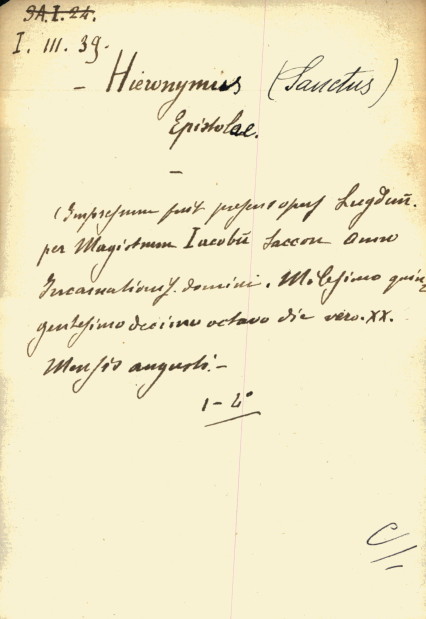 SA.I.24.
I. III. 39.
- Hieronymus (Sanctus)
Epistolae.
-
(Impressum fuit presens opus Lugduñ.
per Magistrum Iacobũ Saccon Anno
Incarnationis domini. Milesimo quin
gentesimo decimo octavo die vero. XX.
Mensis augusti. -
1 - 4°